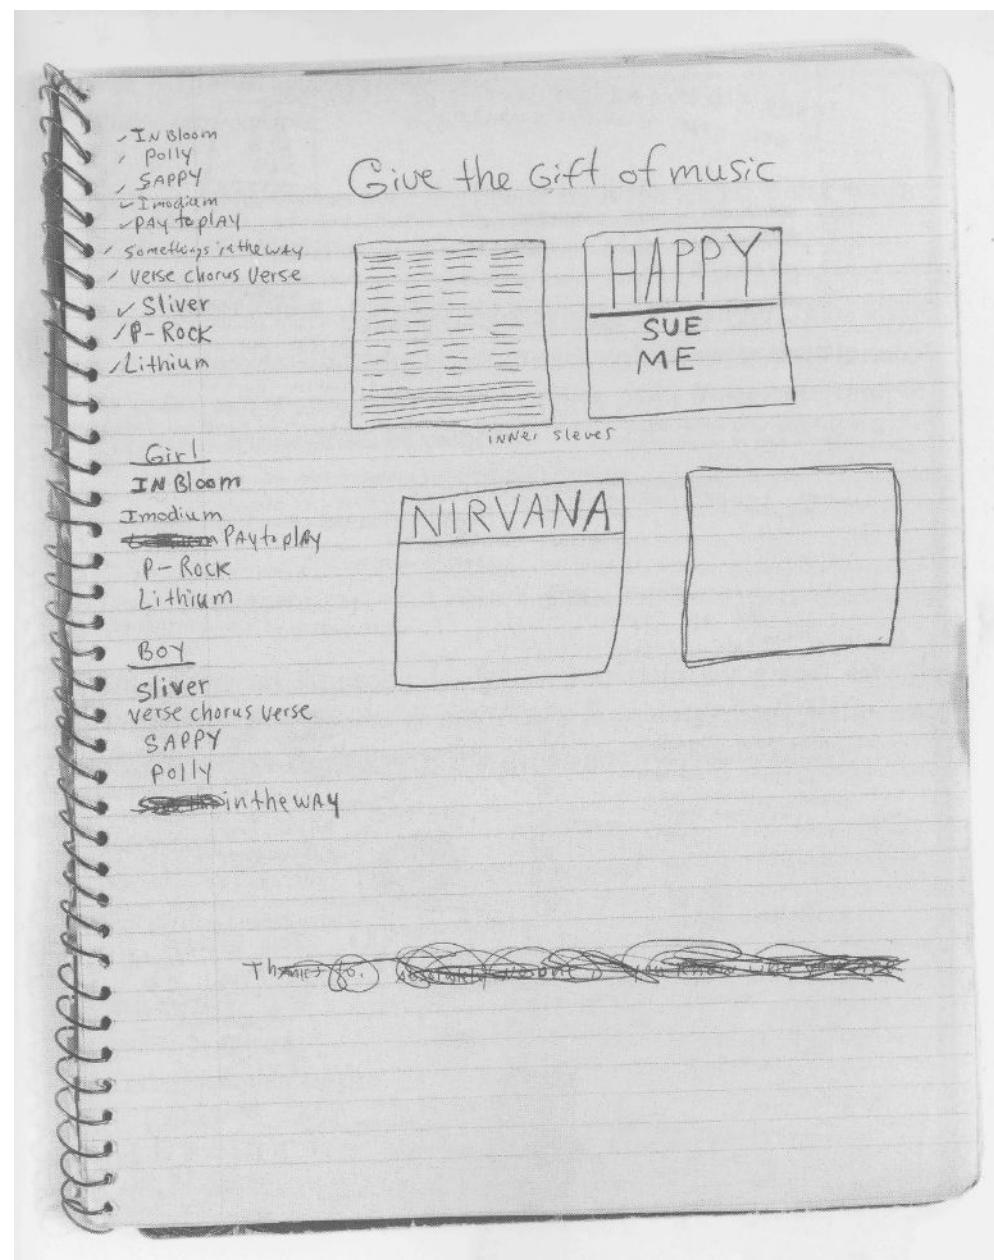 IN Bloom
Polly
SAPPY
Imodium
PAY to plAY
Somethings in the wAy
verse chorus Verse
Sliver
P-Rock
Lithium
Give the Gift of music
HAPPY
SUE
ME
inner sleves
NIRVANA
Girl
IN Bloom
Imodium
PAy to plAy
P-Rock
Lithium
Boy
Sliver
verse chorus verse
SAPPY
Polly
in the wAy
Thanks to. you know who